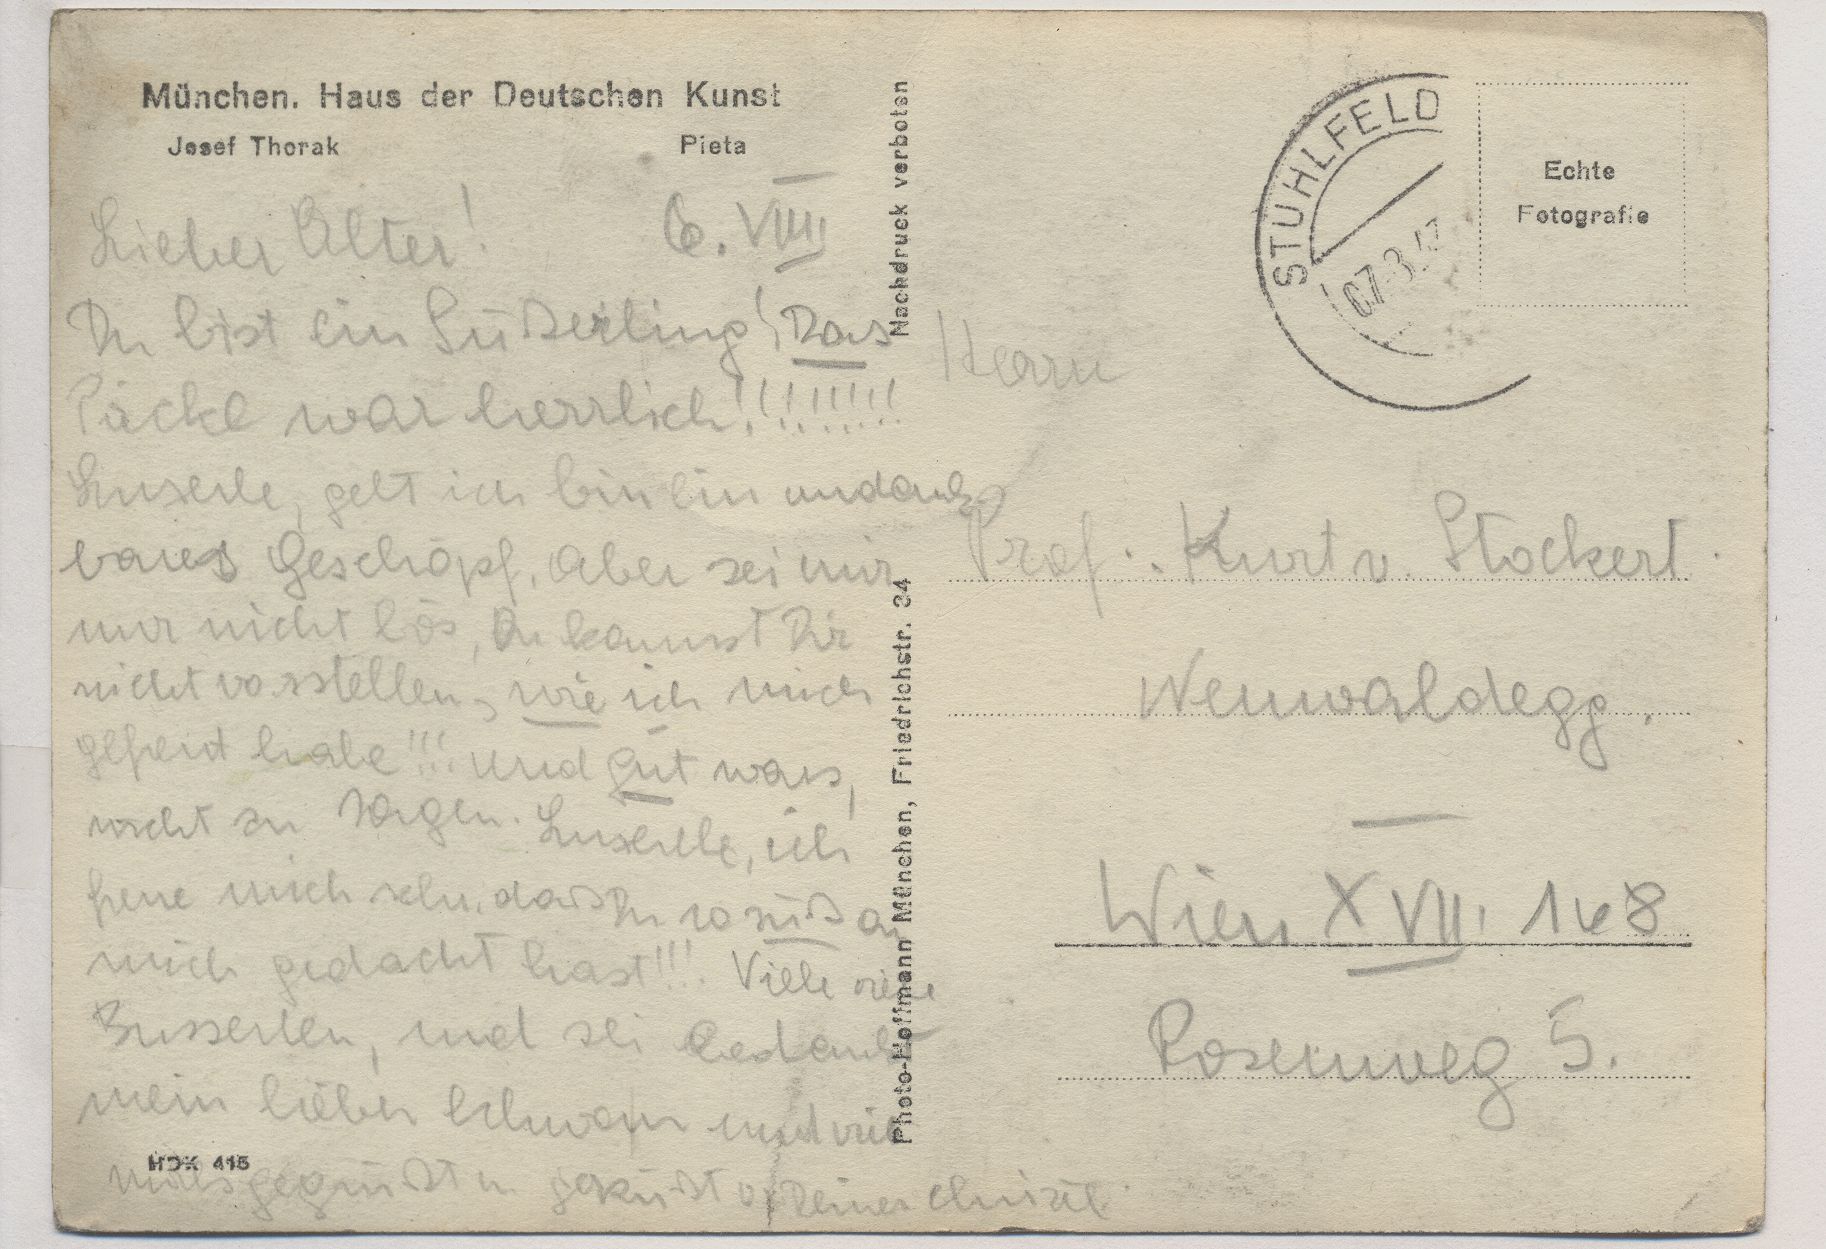 München. Haus der Deutschen Kunst
Josef Thorak Pieta
6. VIII
Lieber Alter!
Du bist ein Süßerling! Das
Päckl war herrlich!!!!!!!!!
Luserle, gelt ich bin ein undank
bares Geschöpf. Aber sei mir
nur nicht bös, Du kannst Dir
nicht vorstellen, wie ich mich
gefreut habe!!! Und gut wars,
nicht zu sagen. Luserle, ich
freue mich sehr, dass Du so süß an
mich gedacht hast!!! Viele
Busserlen, und sei bedankt
mein lieber und viel
mals gegrüßt u. geküßt v. Deiner
HDK 415
Nachdruck verboten
Photo-Hoffmann München, Friedrichstr. 34
STUHLFELD
Echte
Fotografie
Herrn
Prof. Kurt v. Stockert
Neuwaldegg.
Wien XVII. 168
Rosenweg 5.